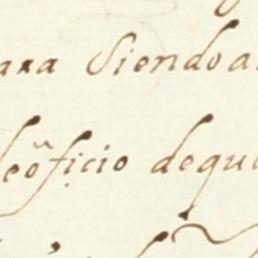 ara Siendo a
leõficio dequ